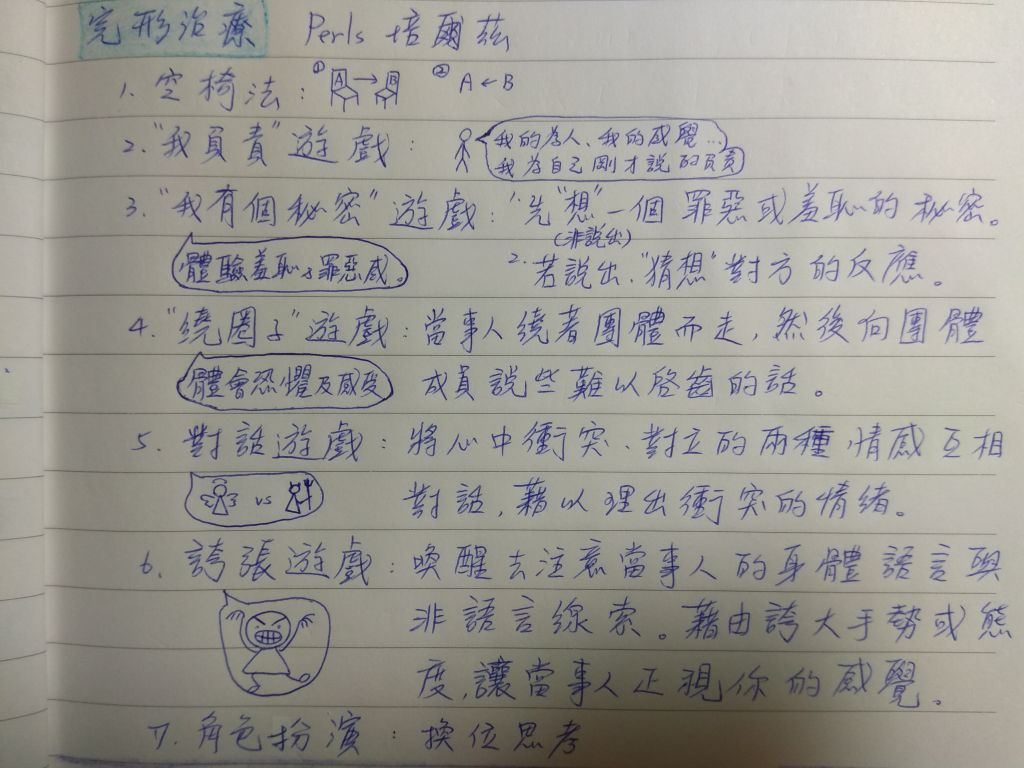 完形治療 Perls 培爾茲
1. 空椅法：① A→B ② A←B
2. "我負責"遊戲：我的為人、我的感覺…
我為自己剛才說的負責
3. "我有個秘密"遊戲：1. 先"想"一個罪惡或羞恥的秘密。
(非說出)
體驗羞恥、罪惡感。 2. 若說出，"猜想"對方的反應。
4. "繞圈子"遊戲：當事人繞著團體而走，然後向團體
體會恐懼及感受 成員說些難以啓齒的話。
5. 對話遊戲：將心中衝突、對立的兩種情感互相
vs 對話，藉以理出衝突的情緒。
6. 誇張遊戲：喚醒去注意當事人的身體語言與
非語言線索。藉由誇大手勢或態
度，讓當事人正視你的感覺。
7. 角色扮演：換位思考